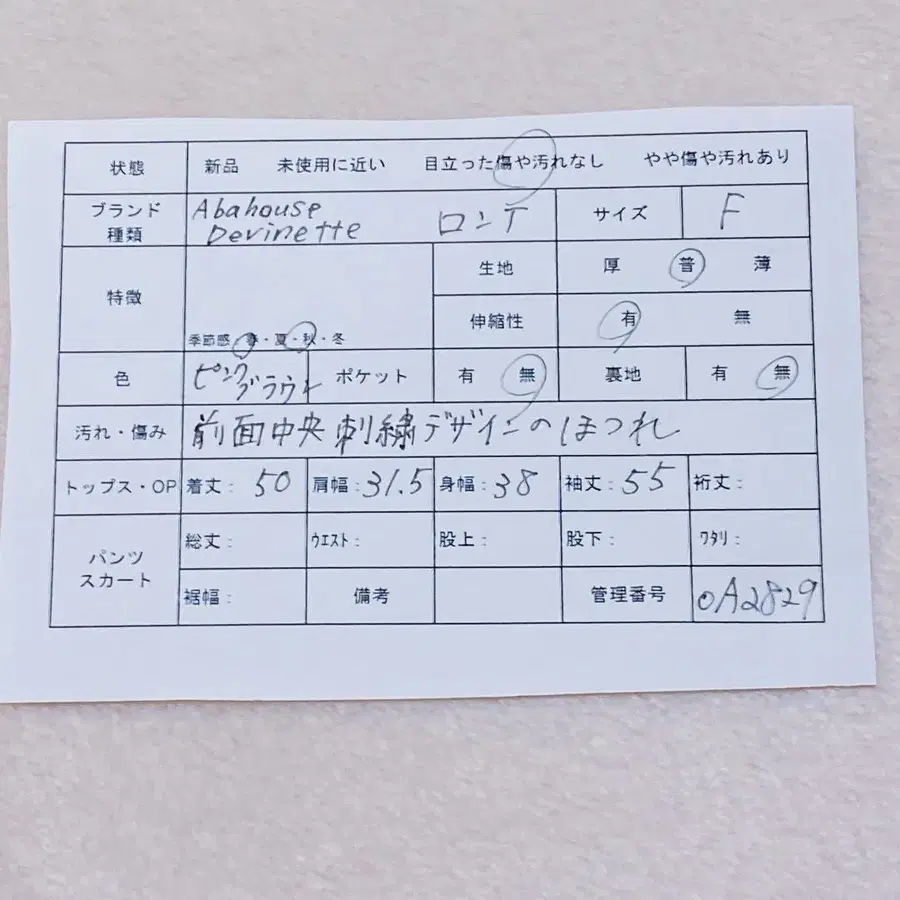 状態 新品 未使用に近い 目立った傷や汚れなし やや傷や汚れあり
ブランド 種類 Abahouse Devinette ロンT サイズ F
特徴 生地 厚 普 薄
季節感 春・夏・秋・冬 伸縮性 有 無
色 ピンク ブラウン ポケット 有 無 裏地 有 無
汚れ・傷み 前面中央刺繍デザインのほつれ
トップス・OP 着丈: 50 肩幅: 31.5 身幅: 38 袖丈: 55 裄丈:
パンツ スカート 総丈: ウエスト: 股上: 股下: ワタリ:
裾幅: 備考 管理番号 oA2829